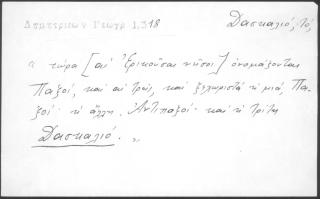 Δημητριέων Γεωγρ 1.318
Δασκαλιό, τό,
« τώρα [αἱ Ἐρικοῦσαι νῆσοι] ὀνομάζονται
Παξοί, καὶ αἱ τρεῖς, καὶ ξεχωριστὰ ἡ μιά, Πα-
ξοί· ἡ ἄλλη, Ἀντιπαξοί· καὶ ἡ τρίτη
Δασκαλιό. »